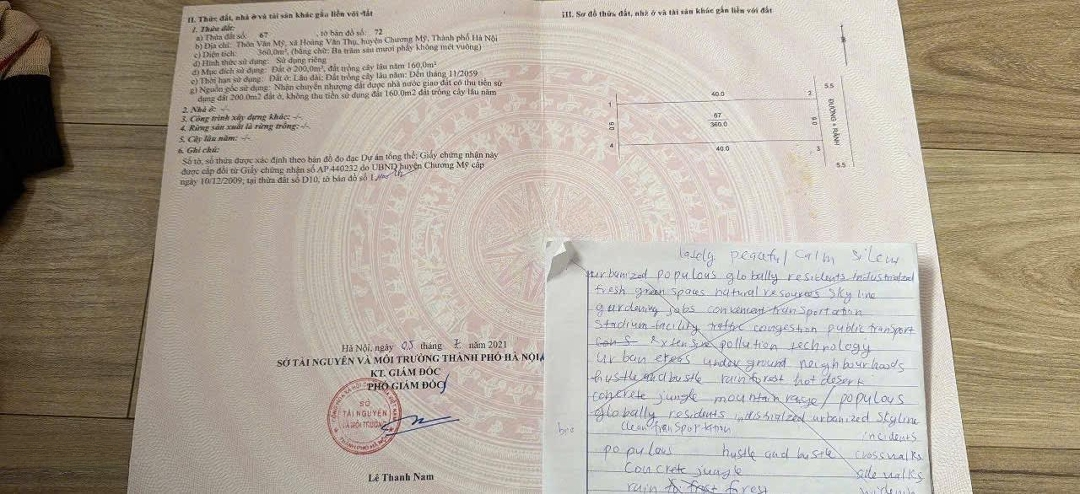 II. Thửa đất, nhà ở và tài sản khác gắn liền với đất
1. Thửa đất:
a) Thửa đất số: 67 , tờ bản đồ số: 72
b) Địa chỉ: Thôn Văn Mỹ, xã Hoàng Văn Thụ, huyện Chương Mỹ, Thành phố Hà Nội
c) Diện tích: 360,0m², (bằng chữ: Ba trăm sáu mươi phẩy không mét vuông)
d) Hình thức sử dụng: Sử dụng riêng
đ) Mục đích sử dụng: Đất ở 200,0m², đất trồng cây lâu năm 160,0m²
e) Thời hạn sử dụng: Đất ở: Lâu dài; Đất trồng cây lâu năm: Đến tháng 11/2059
g) Nguồn gốc sử dụng: Nhận chuyển nhượng đất được nhà nước giao đất có thu tiền sử
dụng đất 200.0m2 đất ở, không thu tiền sử dụng đất 160.0m2 đất trồng cây lâu năm
2. Nhà ở: -/-
3. Công trình xây dựng khác: -/-
4. Rừng sản xuất là rừng trồng: -/-
5. Cây lâu năm: -/-
6. Ghi chú:
Số tờ, số thửa được xác định theo bản đồ đo đạc Dự án tổng thể; Giấy chứng nhận này
được cấp đổi từ Giấy chứng nhận số AP 440232 do UBND huyện Chương Mỹ cấp
ngày 10/12/2009; tại thửa đất số D10, tờ bản đồ số 1
Hà Nội, ngày 05 tháng 7 năm 2021
SỞ TÀI NGUYÊN VÀ MÔI TRƯỜNG THÀNH PHỐ HÀ NỘI
KT. GIÁM ĐỐC
PHÓ GIÁM ĐỐC
SỞ
TÀI NGUYÊN
VÀ MÔI TRƯỜNG
THÀNH PHỐ HÀ NỘI
Lê Thanh Nam
III. Sơ đồ thửa đất, nhà ở và tài sản khác gắn liền với đất
40.0
1
2
5.5
9.0
67
360.0
9.0
ĐƯỜNG + RÃNH
4
40.0
3
5.5
calm
urbanized populous globally residents industrialized
fresh green spaces natural resources skyline
gardening jobs convenient transportation
stadium facility traffic congestion public transport
cons extensive pollution technology
urban areas underground neighbourhoods
hustle and bustle rain forest hot desert
concrete jungle mountain range / populous
globally residents urbanized skyline
clean transportation incidents
populous hustle and bustle crosswalks
concrete jungle side walks
rain forest